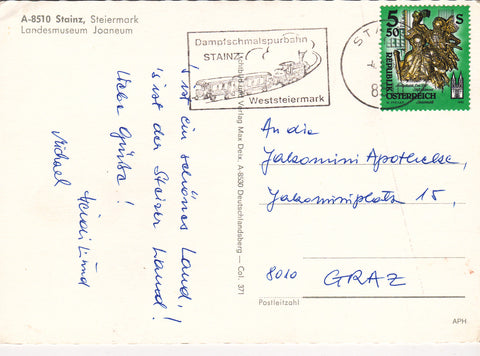 A-8510 Stainz, Steiermark
Landesmuseum Joaneum
Dampfschmalspurbahn
STAINZ
Weststeiermark
ST
8
5 50 S
REPUBLIK
ÖSTERREICH
's ist ein schönes Land,
's ist der Stainzer Land!
Liebe Grüße!
Heidi und
Michael
Verlag Max Deix, A-8530 Deutschlandsberg — Col. 371
An die
Jakomini Apotheke,
Jakominiplatz 15,
8010 GRAZ
Postleitzahl
APH